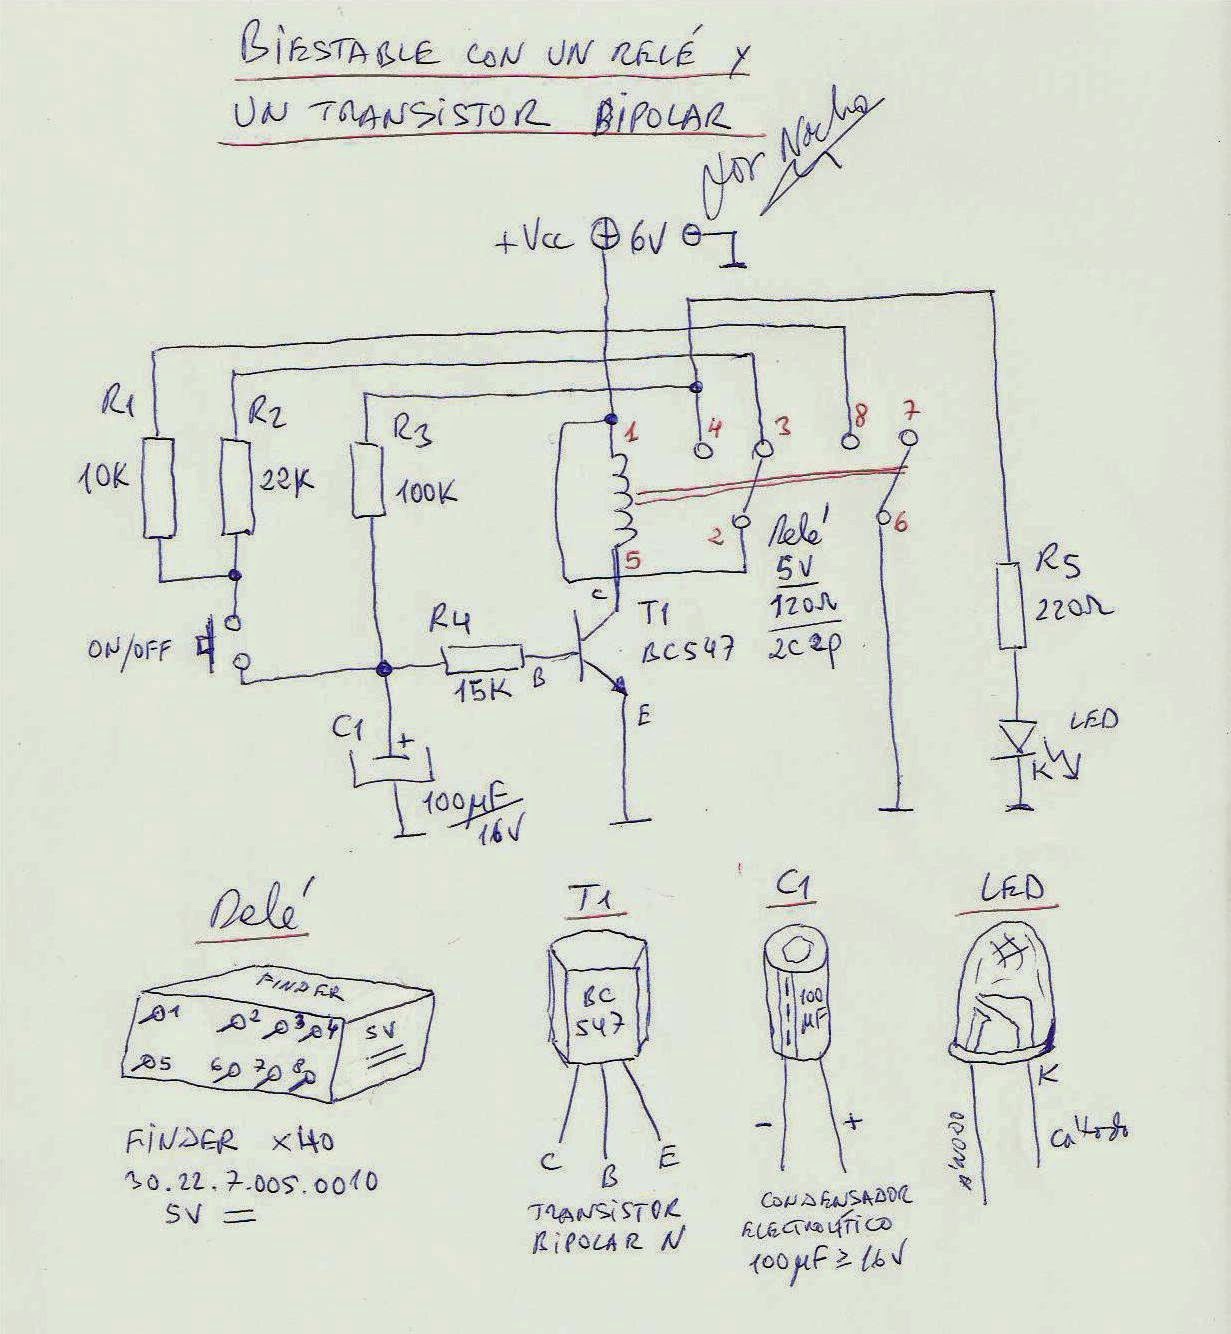 BIESTABLE CON UN RELÉ Y
UN TRANSISTOR BIPOLAR
Por Nacho
+Vcc ⊕ 6V ⊖
R1
10K
R2
22K
R3
100K
1
4
3
8
7
2
6
5
Relé
5V
120Ω
2C 2p
R5
220Ω
ON/OFF
R4
15K
B
C
T1
BC547
E
C1
+
100µF
16V
LED
K
Relé
FINDER
1
2
3
4
5
6
7
8
5V
FINDER x40
30.22.7.005.0010
5V =
T1
BC
547
C
B
E
TRANSISTOR
BIPOLAR N
C1
100
µF
-
+
CONDENSADOR
ELECTROLÍTICO
100µF ≥ 16V
LED
K
ÁNODO
Cátodo